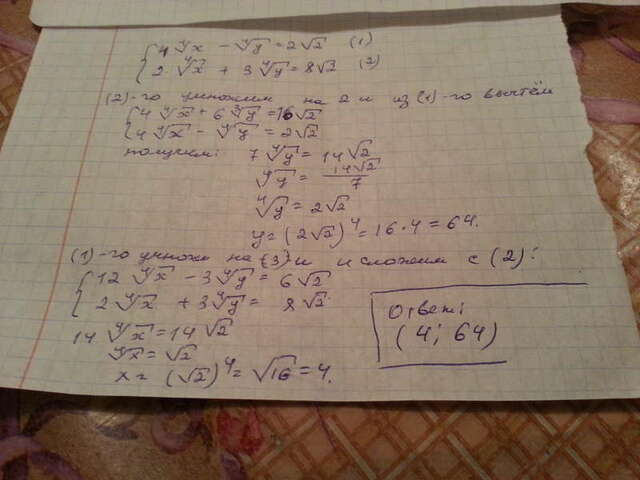 { 4 ∜x - ∜y = 2√2 (1)
{ 2 ∜x + 3 ∜y = 8√2 (2)
(2)-го умножим на 2 и из (1)-го вычтем
{ 4 ∜x + 6 ∜y = 16√2
{ 4 ∜x - ∜y = 2√2
получаем: 7 ∜y = 14√2
∜y = 14√2/7
∜y = 2√2
y = (2√2)⁴ = 16·4 = 64.
(1)-го умножи на {3} и и сложим с (2):
{ 12 ∜x - 3∜y = 6√2
{ 2 ∜x + 3∜y = 8√2
14 ∜x = 14√2
∜x = √2
x = (√2)⁴ = √16 = 4.
Ответ:
(4; 64)